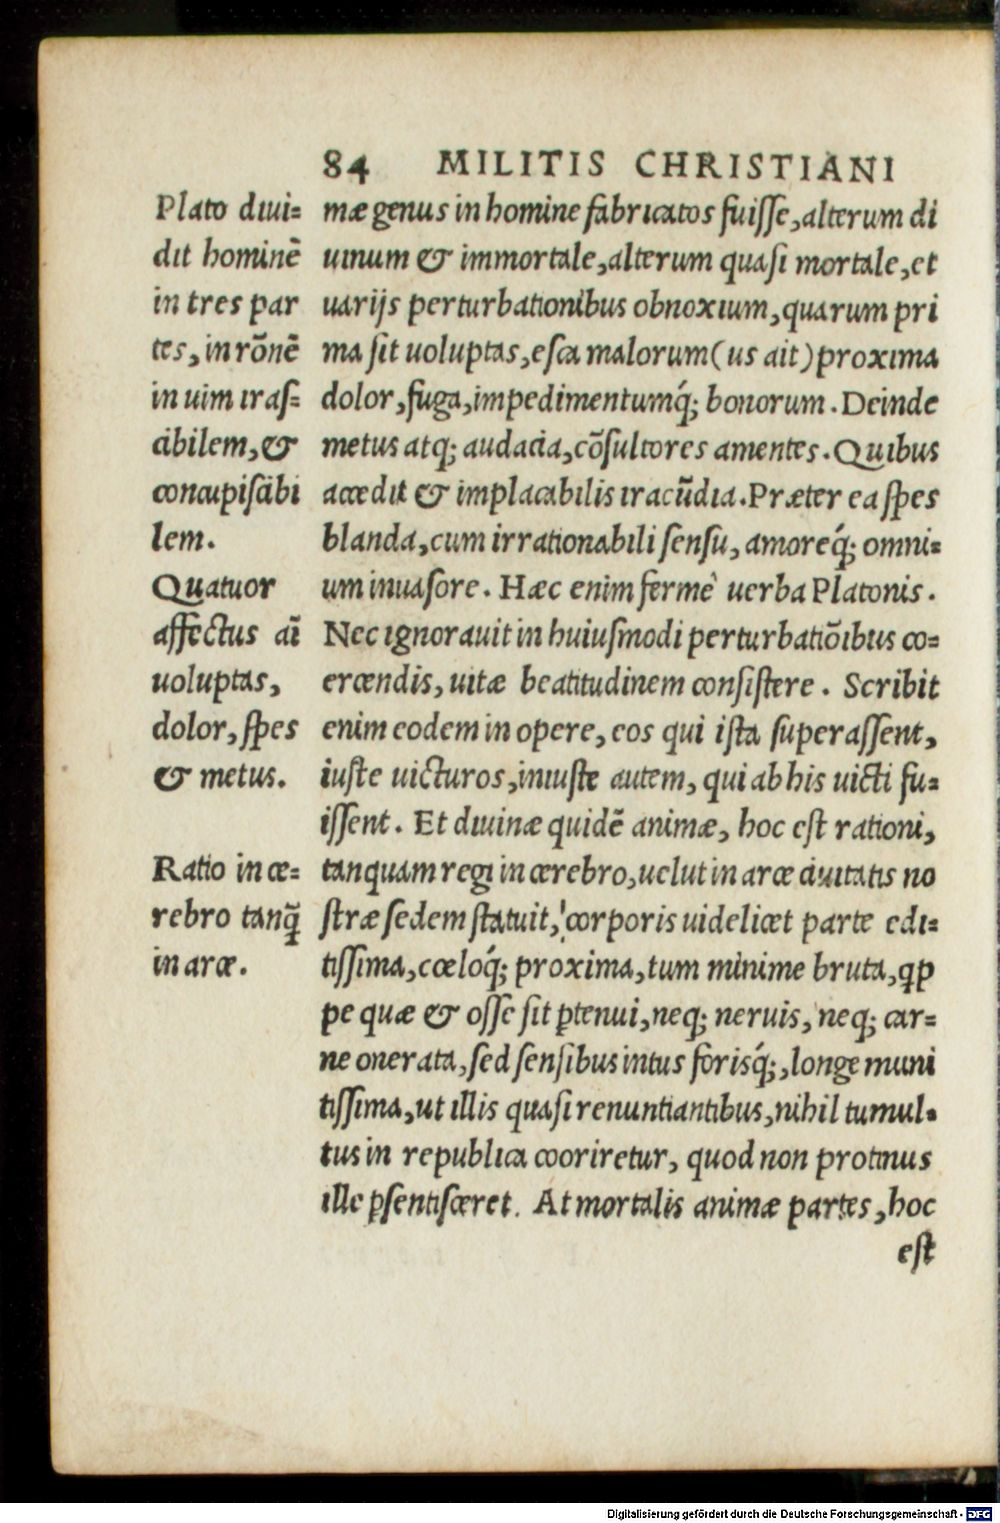 84 MILITIS CHRISTIANI
Plato diui=
dit hominē
in tres par
tes, in rōnē
in uim iraſ=
cibilem, &
concupiſcibi
lem.
Quatuor
affectus aī
uoluptas,
dolor, ſpes
& metus.
Ratio in ce=
rebro tanq̄
in arce.
mæ genus in homine fabricatos fuiſſe, alterum di
uinum & immortale, alterum quaſi mortale, et
uarijs perturbationibus obnoxium, quarum pri
ma ſit uoluptas, eſca malorum (us ait) proxima
dolor, fuga, impedimentumq́; bonorum. Deinde
metus atq; audacia, cōſultores amentes. Quibus
accedit & implacabilis iracūdia. Præter ea ſpes
blanda, cum irrationabili ſenſu, amoreq́; omni=
um inuaſore. Hæc enim fermè uerba Platonis.
Nec ignorauit in huiuſmodi perturbatiōibus co=
ercendis, uitæ beatitudinem conſiſtere. Scribit
enim eodem in opere, eos qui iſta ſuperaſſent,
iuſte uicturos, iniuſte autem, qui ab his uicti fu=
iſſent. Et diuinæ quidē animæ, hoc eſt rationi,
tanquam regi in cerebro, uelut in arce ciuitatis no
ſtræ ſedem ſtatuit, corporis uidelicet parte edi=
tiſſima, cœloq́; proxima, tum minime bruta, qꝑ
pe quæ & oſſe ſit ꝑtenui, neq; neruis, neq; car=
ne onerata, ſed ſenſibus intus forisq́;, longe muni
tiſſima, ut illis quaſi renuntiantibus, nihil tumul=
tus in republica cooriretur, quod non protinus
ille ꝑſentiſceret. At mortalis animæ partes, hoc
eſt
Digitalisierung gefördert durch die Deutsche Forschungsgemeinschaft - DFG